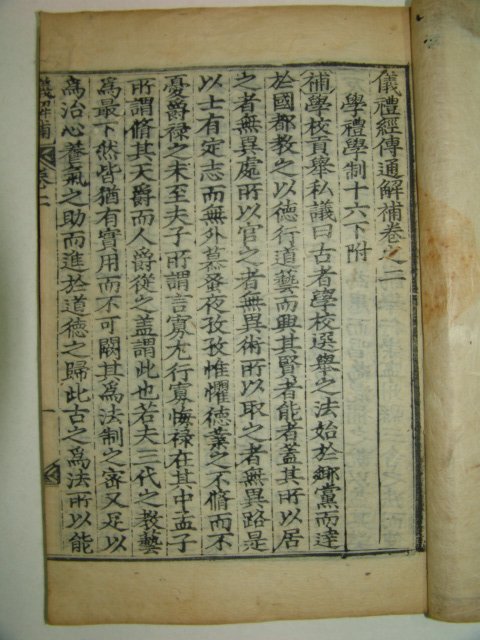 儀禮經傳通解補卷之二
學禮學制十六下附
補學校貢舉私議曰古者學校選舉之法始於鄉黨而達
於國都教之以德行道藝而興其賢者能者蓋其所以居
之者無異處所以官之者無異術所以取之者無異路是
以士有定志而無外慕蚤夜孜孜惟懼德業之不脩而不
憂爵祿之未至夫子所謂言寡尤行寡悔祿在其中孟子
所謂脩其天爵而人爵從之盖謂此也若夫三代之教藝
爲最下然皆猶有實用而不可闕其爲法制之密又足以
爲治心養氣之助而進於道德之歸此古之爲法所以能
儀解補 卷二 一